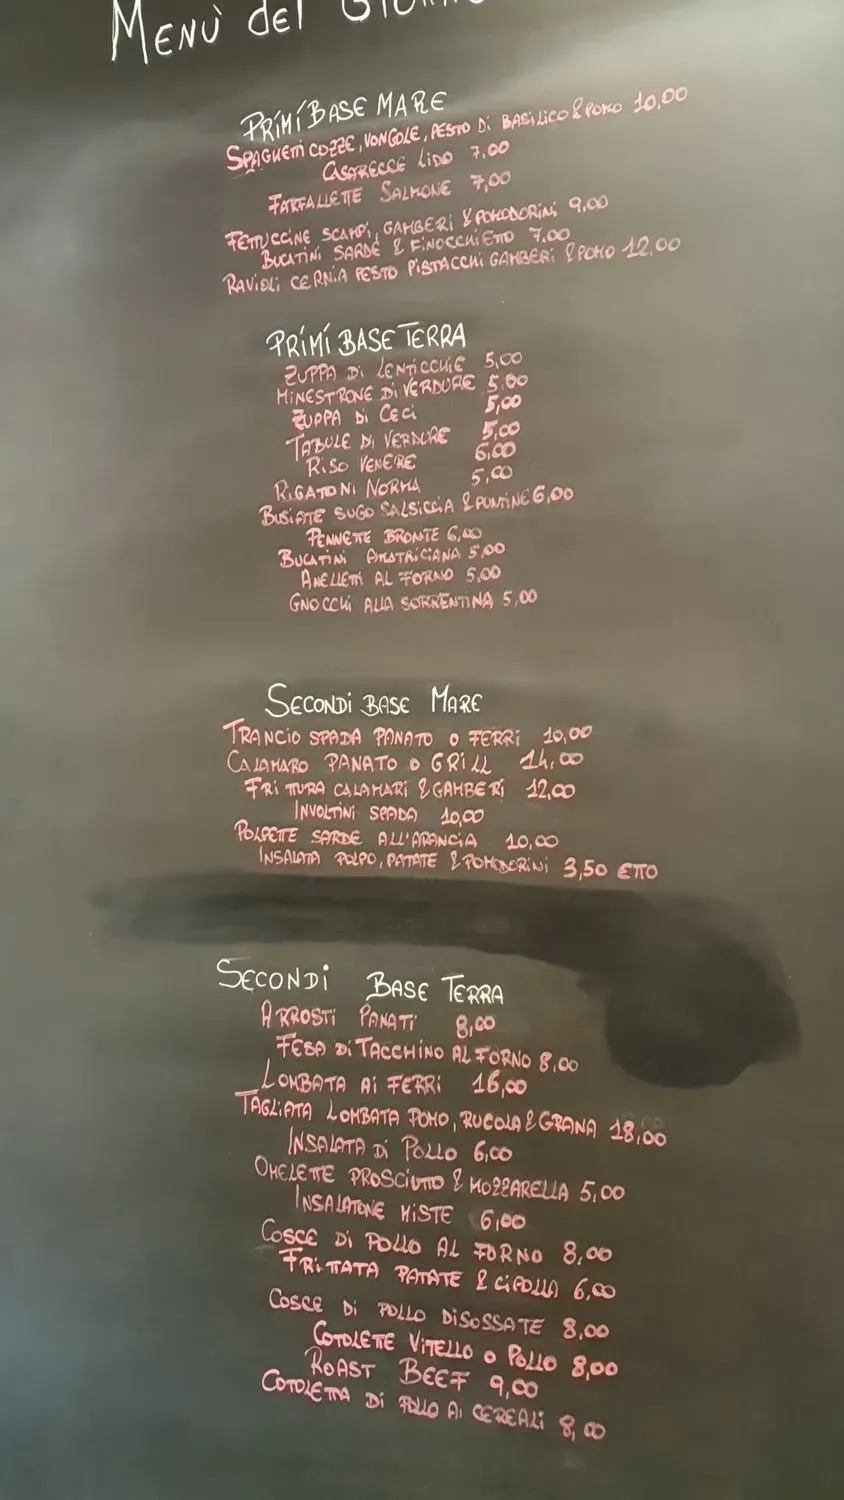 MENÙ del GIORNO
PRIMÍ BASE MARE
SPAGHETTI COZZE, VONGOLE, PESTO Di BASILICO & POMO 10,00
CASARECCE LIDO 7.00
FARFALLETTE SALMONE 7,00
FETTUCCINE SCAMPI, GAMBERI & POMODORINI 9,00
BUCATINI SARDE & FINOCCHIETTO 7.00
RAVIOLI CERNIA PESTO PISTACCHI GAMBERI & POMO 12,00
PRÍMÍ BASE TERRA
ZUPPA Di LENTICCHIE 5,00
MINESTRONE Di VERDURE 5.00
ZUPPA Di CECi 5,00
TABULE Di VERDURE 5,00
RiSO VENERE 6,00
RIGATONI NORMA 5,00
BUSIATE SUGO SALSICCIA & PUNTINE 6,00
PENNETTE BRONTE 6,00
BUCATINI AMATRICIANA 5,00
ANELLETTI AL FORNO 5,00
GNOCCHI ALLA SORRENTINA 5,00
SECONDI BASE MARE
TRANCIO SPADA PANATO O FERRI 10,00
CALAMARO PANATO O GRILL 14,00
FRITTURA CALAMARI & GAMBERI 12,00
INVOLTINI SPADA 10,00
POLPETTE SARDE ALL'ARANCIA 10,00
INSALATA POLPO, PATATE & POMODORINI 3,50 ETTO
SECONDI BASE TERRA
ARROSTI PANATI 8,00
FESA Di TACCHINO AL FORNO 8,00
LOMBATA Ai FERRI 16,00
TAGLIATA LOMBATA POMO, RUCOLA & GRANA 18,00
INSALATA Di POLLO 6,00
OMELETTE PROSCIUTTO & MOZZARELLA 5,00
INSALATONE MISTE 6,00
COSCE Di POLLO AL FORNO 8,00
FRITTATA PATATE & CIPOLLA 6,00
COSCE Di POLLO DISOSSATE 8,00
COTOLETTE VITELLO O POLLO 8,00
ROAST BEEF 9,00
COTOLETTA Di POLLO Ai CEREALI 8,00